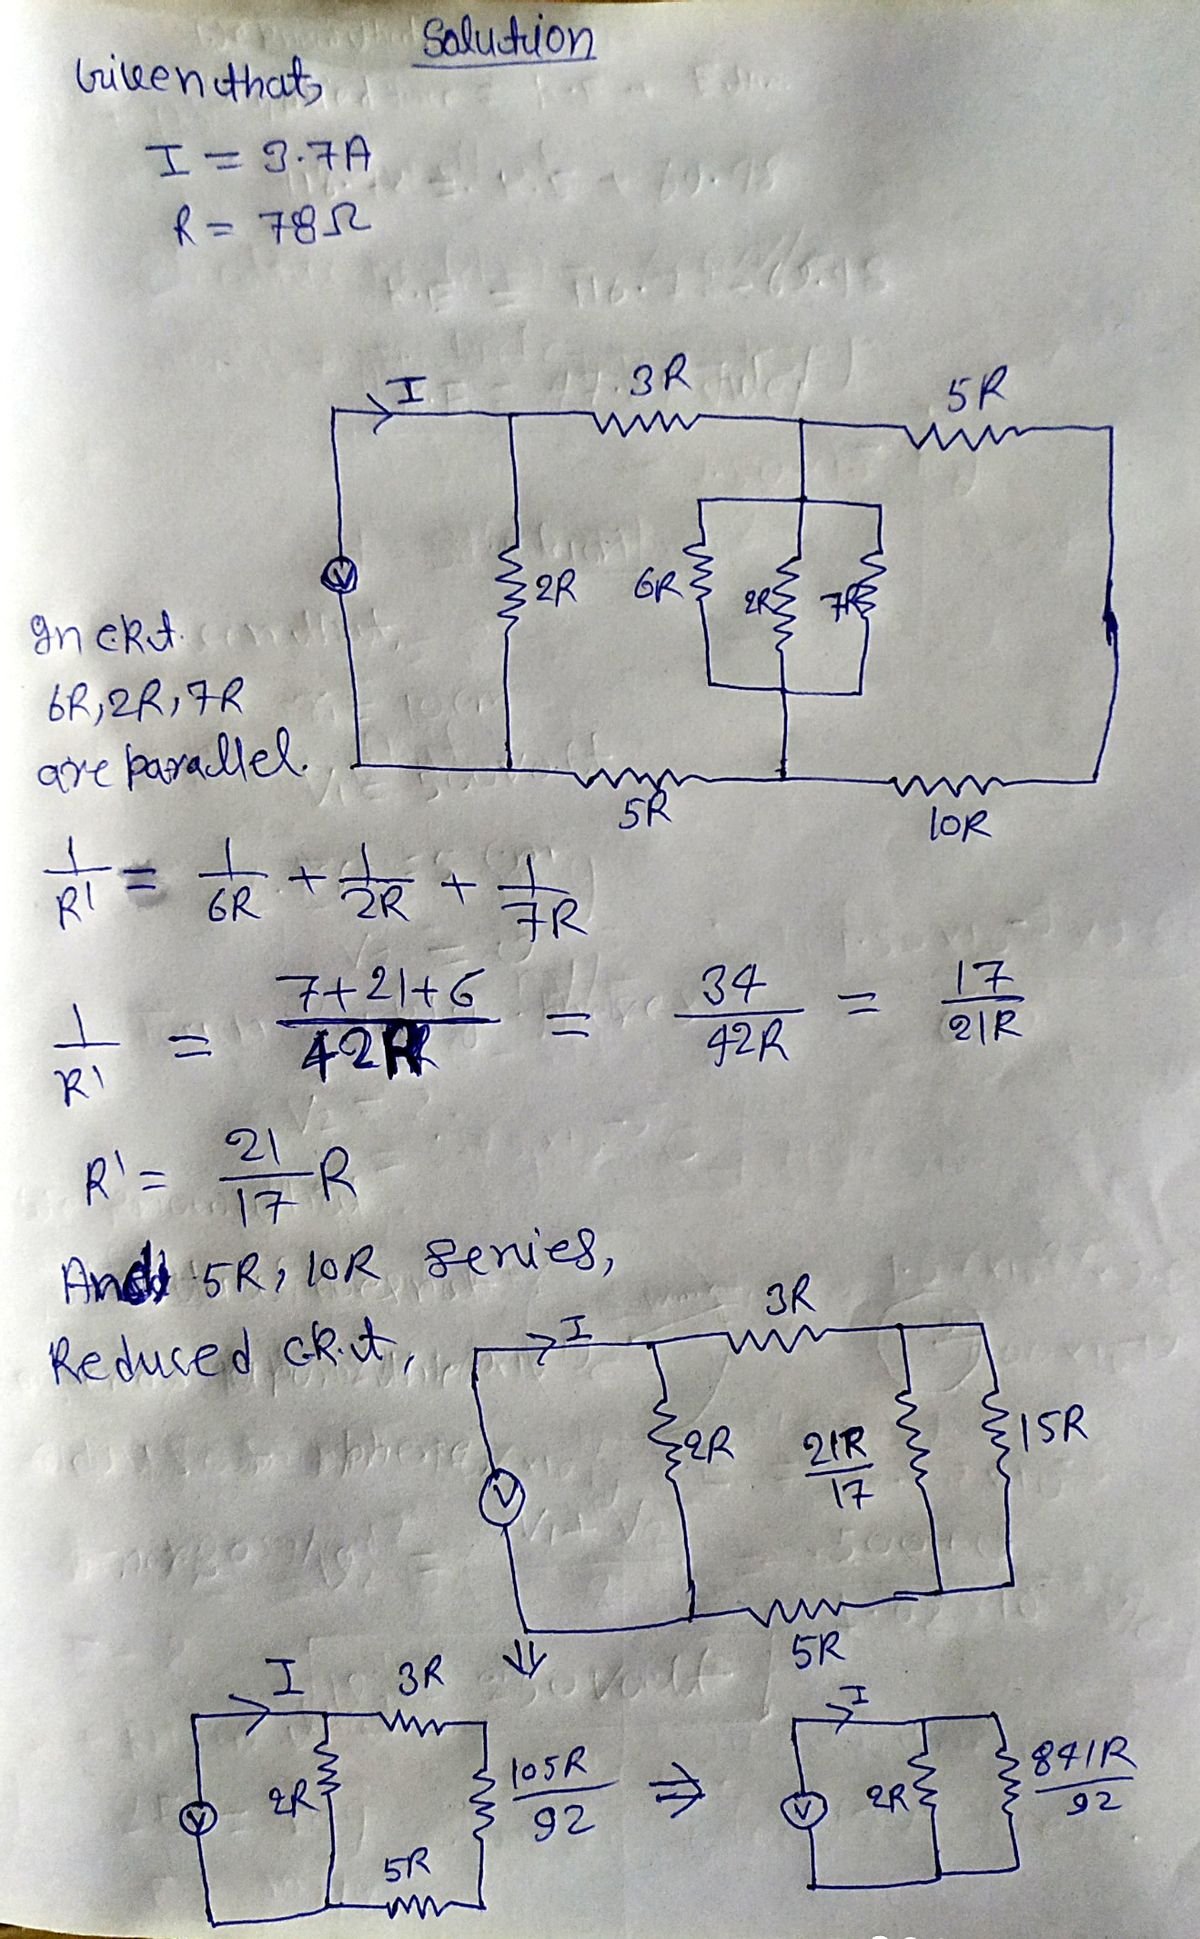 Solution
Given that,
I = 3.7A
R = 78Ω
I
3R
5R
V
2R
6R
2R
7R
5R
10R
In ckt.
6R, 2R, 7R
are parallel.
1/R' = 1/6R + 1/2R + 1/7R
1/R' = 7+21+6/42R = 34/42R = 17/21R
R' = 21/17 R
And 5R, 10R series,
Reduced ckt,
I
3R
V
2R
21R/17
15R
5R
⇓
I
3R
V
2R
105R/92
5R
⇒
I
V
2R
841R/92